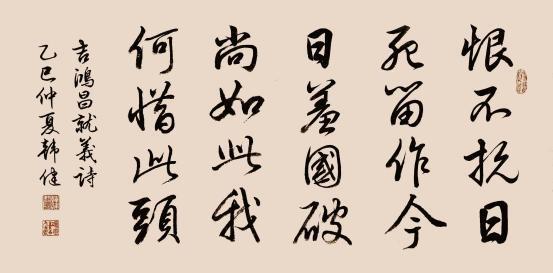 恨不抗日
死留作今
日羞國破
尚如此我
何惜此頭
吉鴻昌就義詩
乙巳仲夏韩健